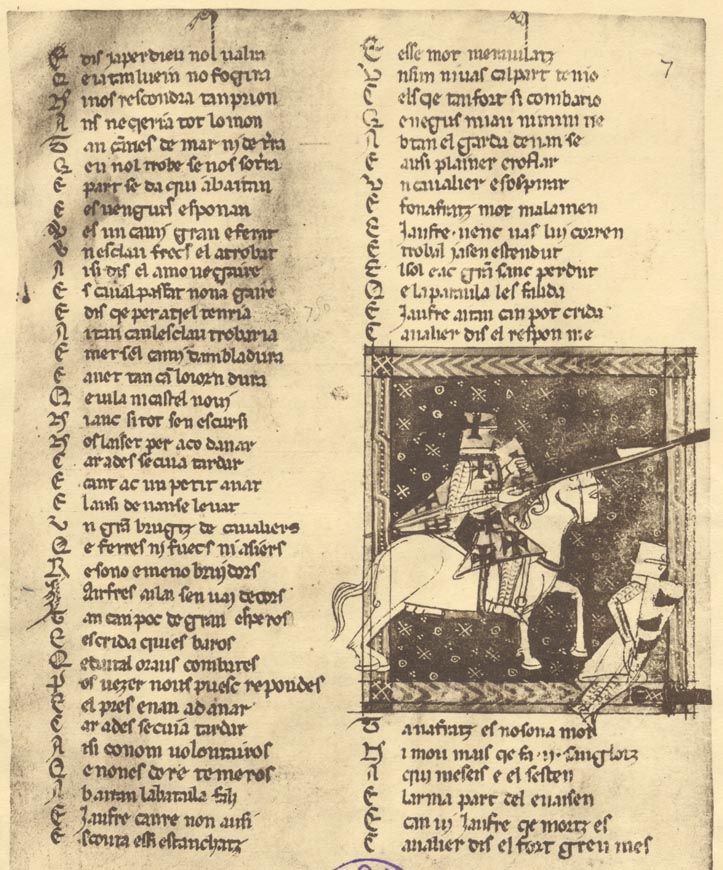 E dis ja per dieu nol ualra
E ia tan luein no fogira
N i nos rescondra tan prion
A ns neqeria tot lo mon
D an canies de mar ni de terra
Q eu nol trobe se nos soterra
E part se da qui abaitan
E es uengutz esponan
E es un cami gran e ferat
U n esclau frecs el atrobat
A isi dis el amo uegaire
E s cuial passat nona gaire
E dis qe per aqel tenria
A itan can lesclau trobaria
E met sel cami tambladura
E anet tan can lo iorn dura
Q e uila ni castel noui
N ianc si tot sen escursi
N os laiset per aco danar
C ar ades se cuia tardar
E cant ac un petit anat
E lausi denant se leuat
U n gran brugtz de caualiers
Q e ferres ni fuecs ni asiers
R esono e meno bruidors
Jaufres aila sen uai decors
T an can poc de gran esperos
E escrida qui es baros
Q e daital ora us combates
P os uezer no us puesc repondes
E el pres enan ad anar
C ar ades se cuia tardar
A isi con om uolonturos
Q e non es de re temeros
A b aitan la batailla fini
E Jaufre can re non ausi
E scouta es estanchatz
E esse mot merauilatz
U ns ni uas cal part tenio
C els qe tan fort si combatio
Q e negus mian ni mini ne
A b tan el garda denan se
E ausi plainer e rostar
U n cauallier e sospirar
E fo nafratz mot malamen
E Jaufre uenc uas lui corren
E troba l jasen estendut
E l sol e ac gran sanc perdut
Q e la paraula les failida
E Jaufre aitan can pot crida
C aualier dis el respon me
7
S i nafratz es no sona mot
N i mou mais qe fa .ii. sanglotz
A qui meseis e el sesten
E larma part del e uaisen
E can ui Jaufre qe mortz es
C aualier dis el fort greu mes